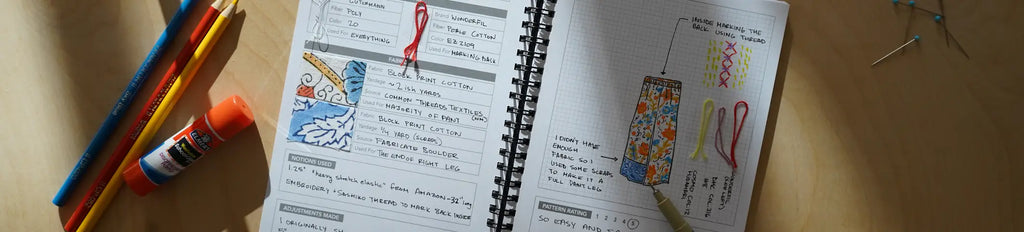 GUTERMANN
Fiber: POLY
Color: 20
Used For: EVERYTHING
Brand: WONDERFIL
Fiber: PERLE COTTON
Color: EZ2109
Used For: MARKING BACK
FAB
Fabric: BLOCK PRINT COTTON
Yardage: ~2ISH YARDS
Source: COMMON THREADS TEXTILES
Used For: MAJORITY OF PANT
Fabric: BLOCK PRINT COTTON
Yardage: 1/4 YARD (SCRAPS)
Source: FABRICATE BOULDER
Used For: THE END OF RIGHT LEG
NOTIONS USED
1.25" "heavy stretch elastic" FROM AMAZON - 32" long
EMBROIDERY + SASHIKO THREAD TO MARK BACK INSIDE
ADJUSTMENTS MADE
I ORIGINALLY
INSIDE MARKING THE
BACK USING THREAD
I DIDN'T HAVE
ENOUGH
FABRIC SO I
USED SOME SCRAPS
TO MAKE IT A
FULL PANT LEG
PATTERN RATING 1 2 3 4 5
SO EASY AND
Elmer's